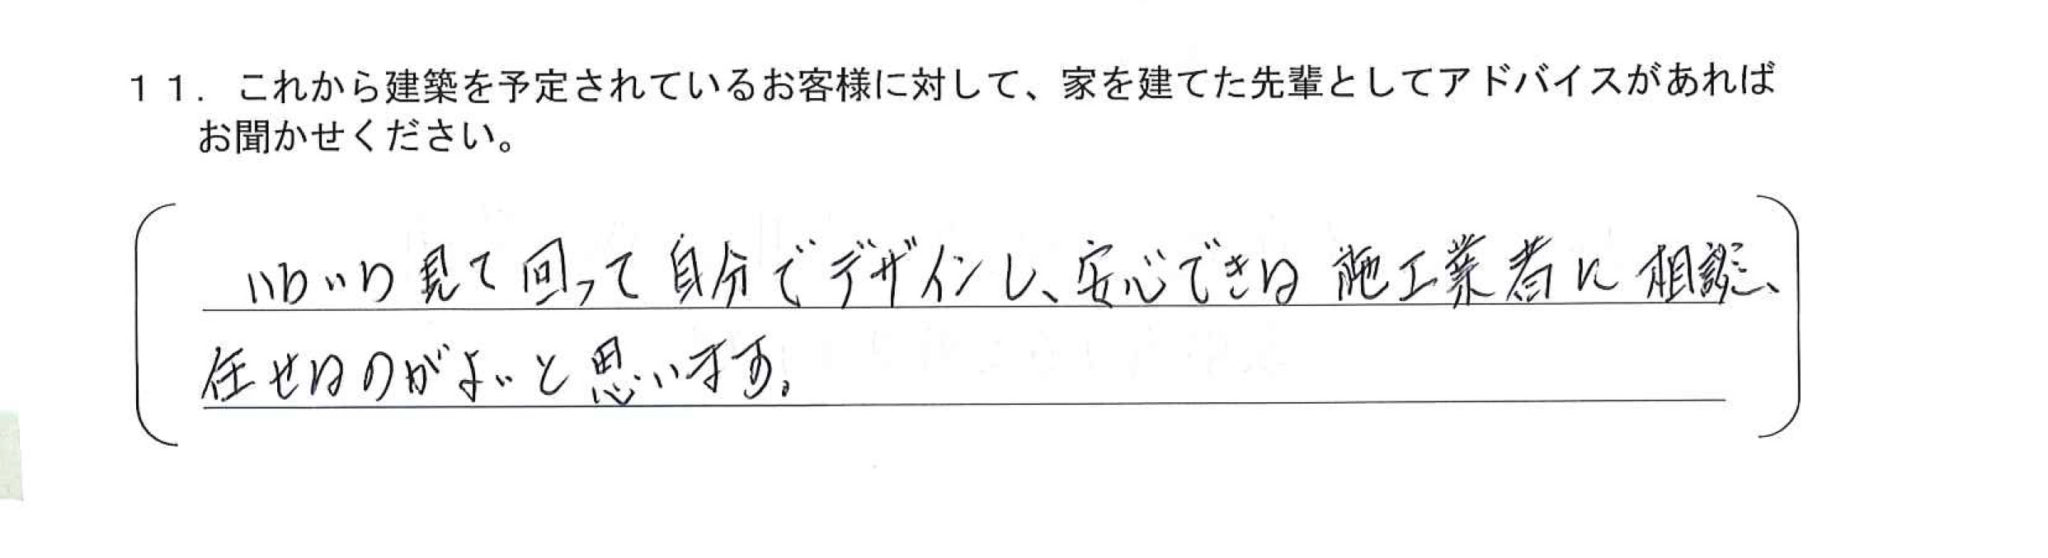 11．これから建築を予定されているお客様に対して、家を建てた先輩としてアドバイスがあれば
お聞かせください。
いろいろ見て回って自分でデザインし、安心できる施工業者に相談、
任せるのがよいと思います。